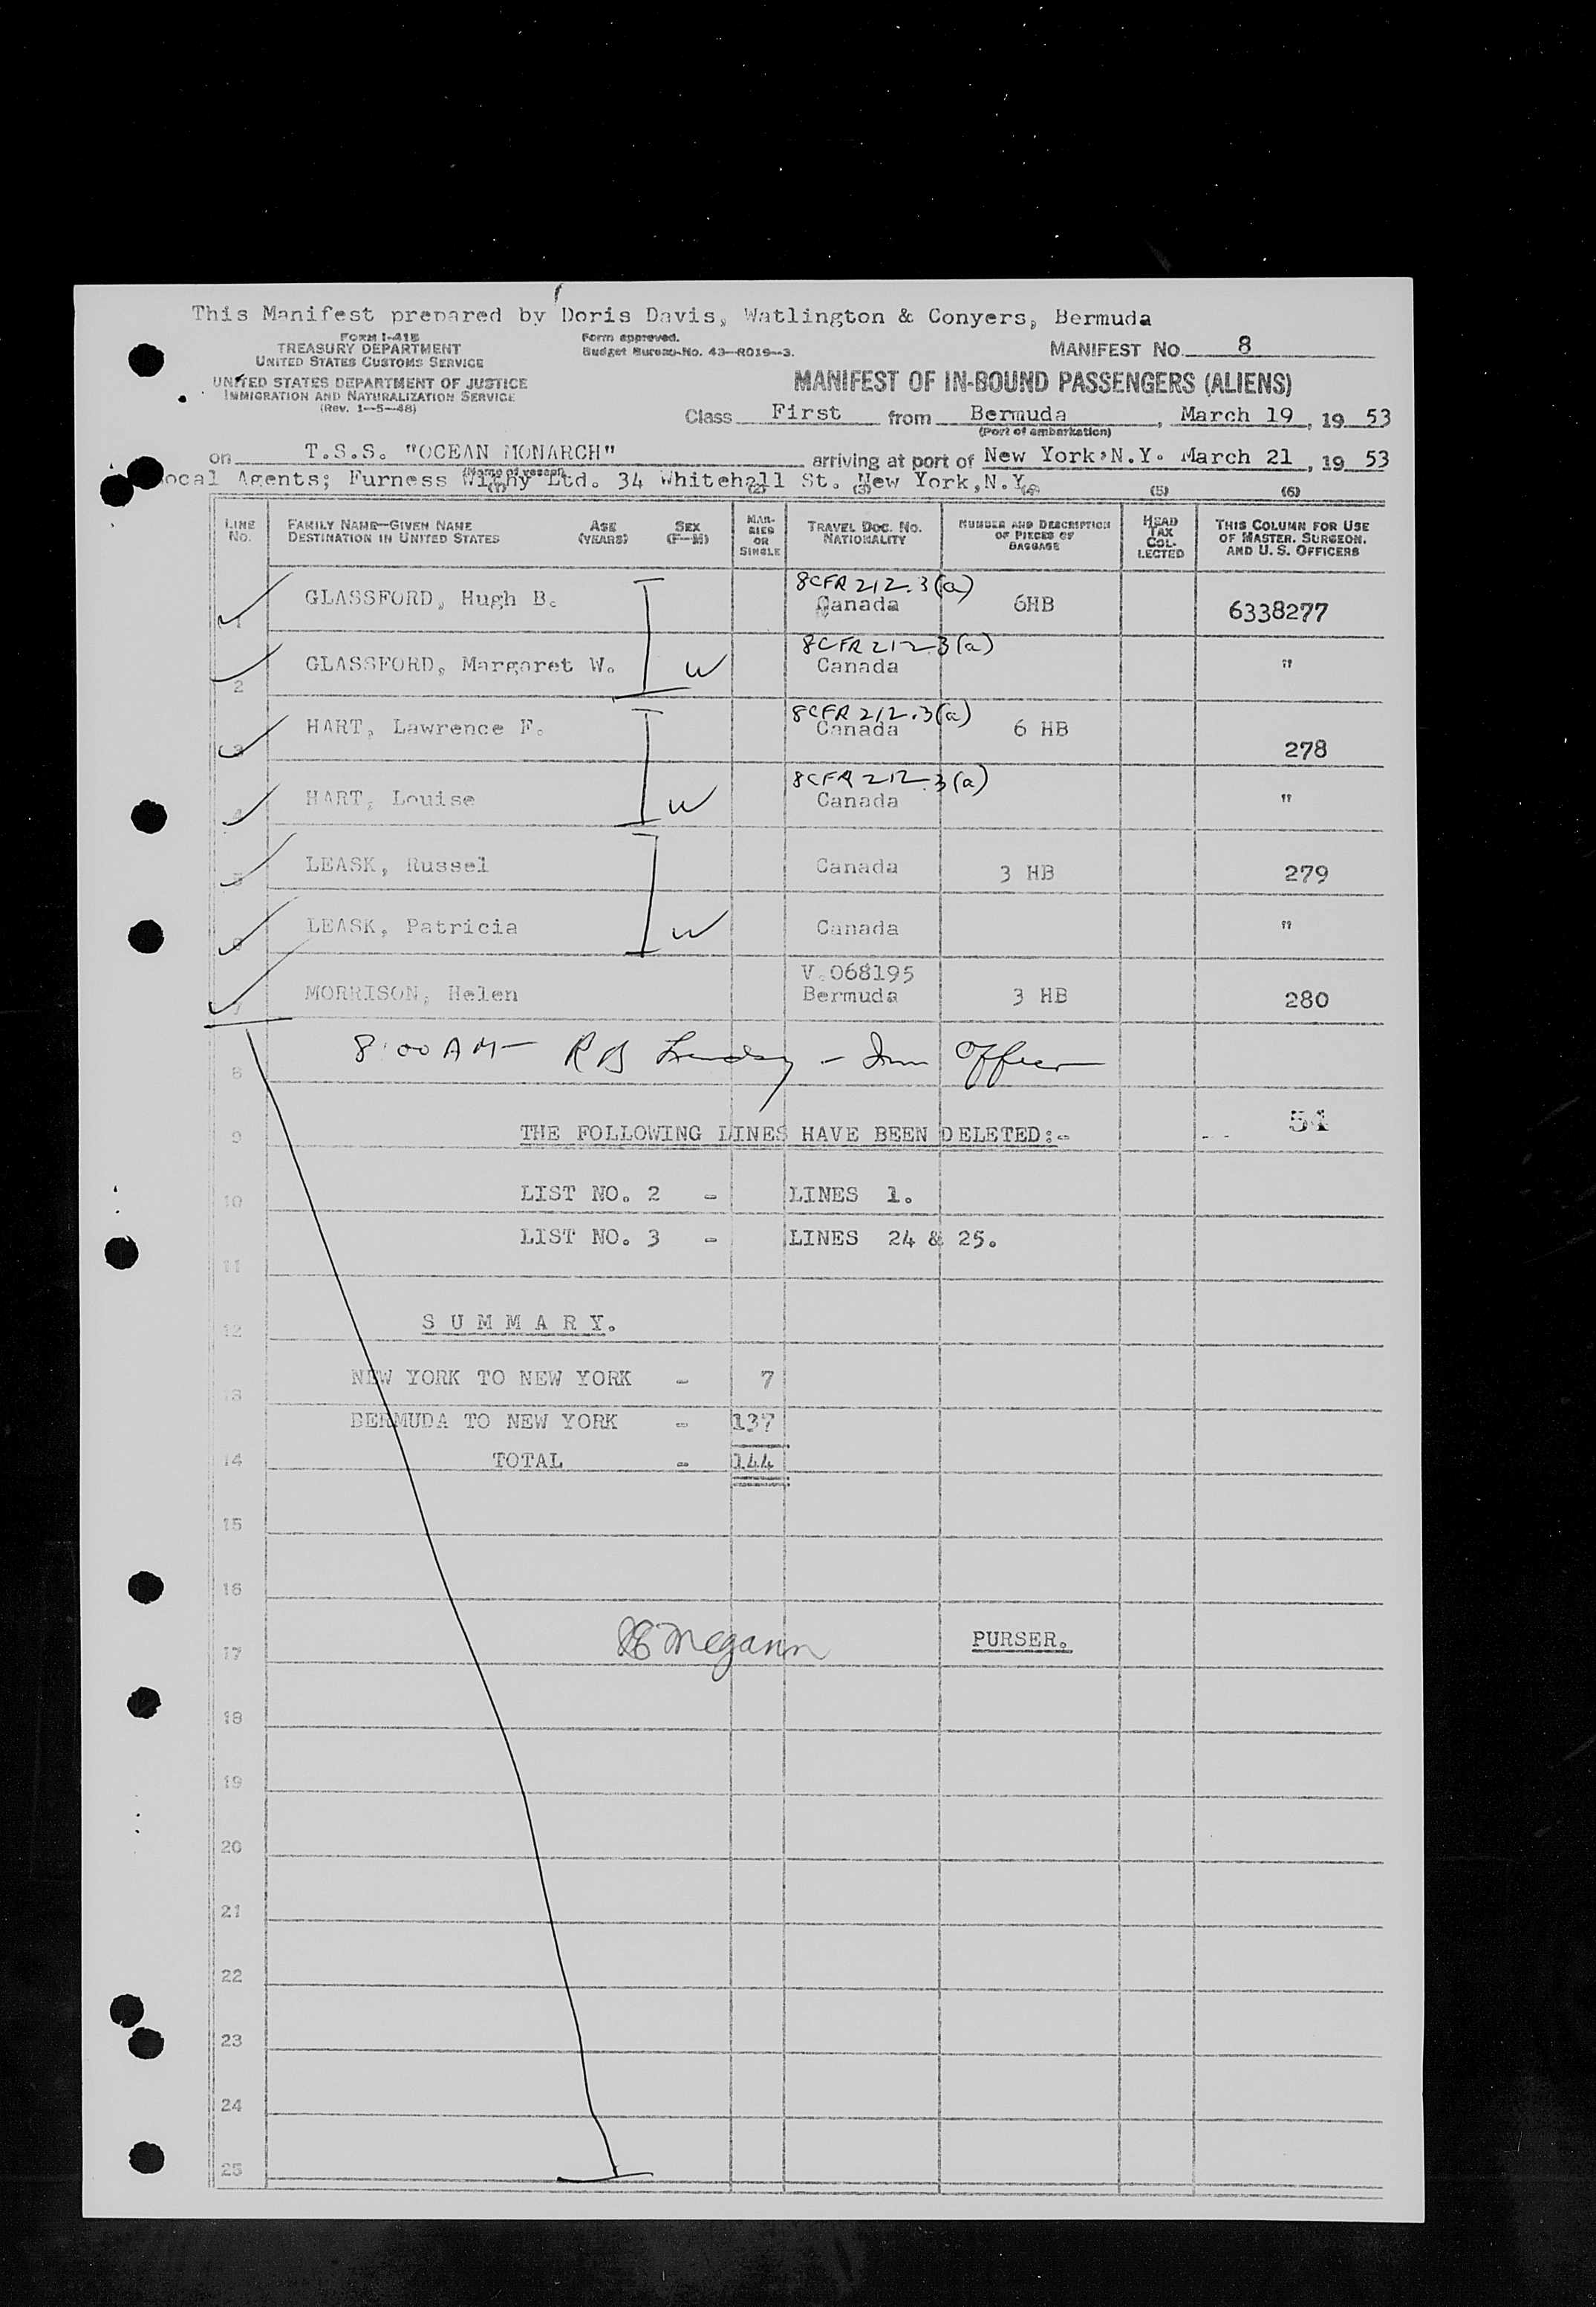 This Manifest prepared by Doris Davis, Watlington & Conyers, Bermuda
FORM I-418
TREASURY DEPARTMENT
UNITED STATES CUSTOMS SERVICE
UNITED STATES DEPARTMENT OF JUSTICE
IMMIGRATION AND NATURALIZATION SERVICE
(Rev. 1-5-48)
Form approved.
Budget Bureau No. 43-R019-3.
MANIFEST NO. 8
MANIFEST OF IN-BOUND PASSENGERS (ALIENS)
Class First from Bermuda, March 19, 19 53
(Port of embarkation)
on T.S.S. "OCEAN MONARCH" arriving at port of New York, N.Y. March 21, 19 53
(Name of vessel)
ocal Agents; Furness Withy Ltd. 34 Whitehall St. New York, N.Y.
(1) (2) (3) (4) (5) (6)
LINE No. FAMILY NAME—GIVEN NAME DESTINATION IN UNITED STATES AGE (YEARS) SEX (F-M) MARRIED OR SINGLE TRAVEL DOC. NO. NATIONALITY NUMBER AND DESCRIPTION OF PIECES OF BAGGAGE HEAD TAX COLLECTED THIS COLUMN FOR USE OF MASTER, SURGEON, AND U. S. OFFICERS
8CFR 212.3(a)
1 GLASSFORD, Hugh B. Canada 6HB 6338277
8CFR 212.3(a)
2 GLASSFORD, Margaret W. W Canada "
8CFR 212.3(a)
3 HART, Lawrence F. Canada 6 HB 278
8CFR 212.3(a)
4 HART, Louise W Canada "
5 LEASK, Russel Canada 3 HB 279
6 LEASK, Patricia W Canada "
V.068195
7 MORRISON, Helen Bermuda 3 HB 280
8:00 AM — R B - Imm Officer
8
9 THE FOLLOWING LINES HAVE BEEN DELETED:- 54
10 LIST NO. 2 - LINES 1.
LIST NO. 3 - LINES 24 & 25.
11
12 S U M M A R Y.
13 NEW YORK TO NEW YORK - 7
BERMUDA TO NEW YORK - 137
14 TOTAL - 144
15
16
17 Megann PURSER.
18
19
20
21
22
23
24
25